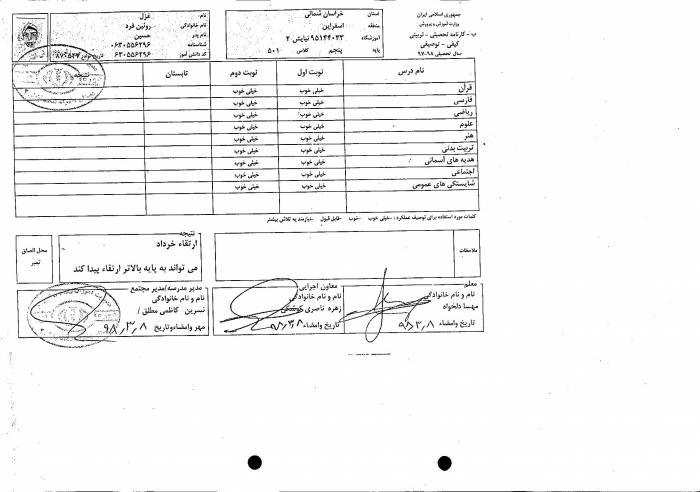 جمهوری اسلامی ایران
وزارت آموزش و پرورش
ب - کارنامه تحصیلی - تربیتی
کیفی - توصیفی
سال تحصیلی ۹۸-۹۷
استان خراسان شمالی
منطقه اسفراین
آموزشگاه ۹۵۱۴۴۰۳۳ نیایش ۲
پایه پنجم کلاس ۵۰۱
نام: غزل
نام خانوادگی روئین فرد
نام پدر حسین
شناسنامه ۰۶۳۰۵۵۶۲۹۶
کد دانش آموز ۰۶۳۰۵۵۶۲۹۶
نام درس نوبت اول نوبت دوم تابستان نتیجه
قرآن خیلی خوب خیلی خوب
فارسی خیلی خوب خیلی خوب
ریاضی خیلی خوب خیلی خوب
علوم خیلی خوب خیلی خوب
هنر خیلی خوب خیلی خوب
تربیت بدنی خیلی خوب خیلی خوب
هدیه های آسمانی خیلی خوب خیلی خوب
اجتماعی خیلی خوب خیلی خوب
شایستگی های عمومی خیلی خوب خیلی خوب
کلمات مورد استفاده برای توصیف عملکرد: -خیلی خوب -خوب -قابل قبول -نیازمند به تلاش بیشتر
ملاحظات
نتیجه
ارتقاء خرداد
می تواند به پایه بالاتر ارتقاء پیدا کند
محل الصاق
تمبر
معلم
نام و نام خانوادگی
مهسا دلخواه
تاریخ وامضاء ۹۸,۳,۸
معاون اجرایی
نام و نام خانوادگی
زهره ناصری
تاریخ وامضاء ۹۸,۳,۸
مدیر مدرسه/مدیر مجتمع
نام و نام خانوادگی
نسرین کاظمی مطلق /
مهر وامضاء وتاریخ ۹۸,۳,۸